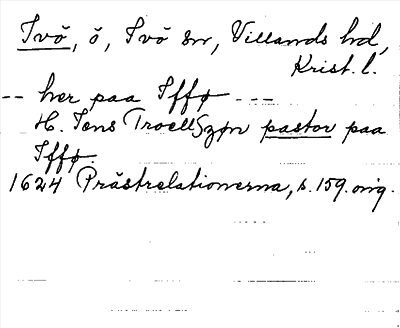 Ivö, ö, Ivö sn, Villands hd,
Krist. l.
-- her paa Iffø ---
H. Jens Troellszøn pastor paa
Iffø.
1624 Prästrelationerna, s. 159. orig.